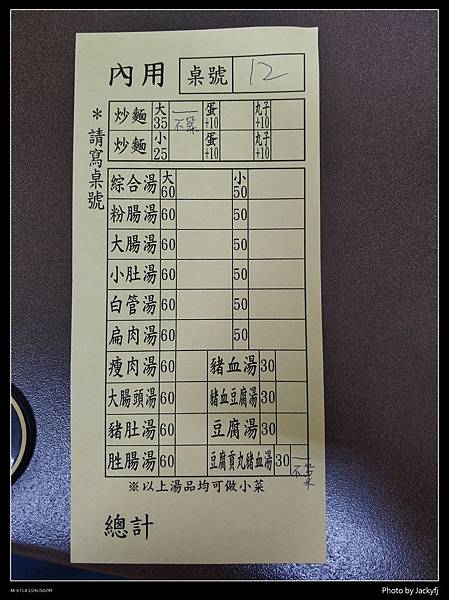 內用 桌號 12
*請寫桌號
炒麵 大35 一 不菜 蛋+10 丸子+10
炒麵 小25 蛋+10 丸子+10
綜合湯 大60 小50
粉腸湯 60 50
大腸湯 60 50
小肚湯 60 50
白管湯 60 50
扁肉湯 60 50
瘦肉湯 60 豬血湯 30
大腸頭湯 60 豬血豆腐湯 30
豬肚湯 60 豆腐湯 30
胜腸湯 60 豆腐貢丸豬血湯 30 一
※以上湯品均可做小菜
總計
Photo by Jackyfj